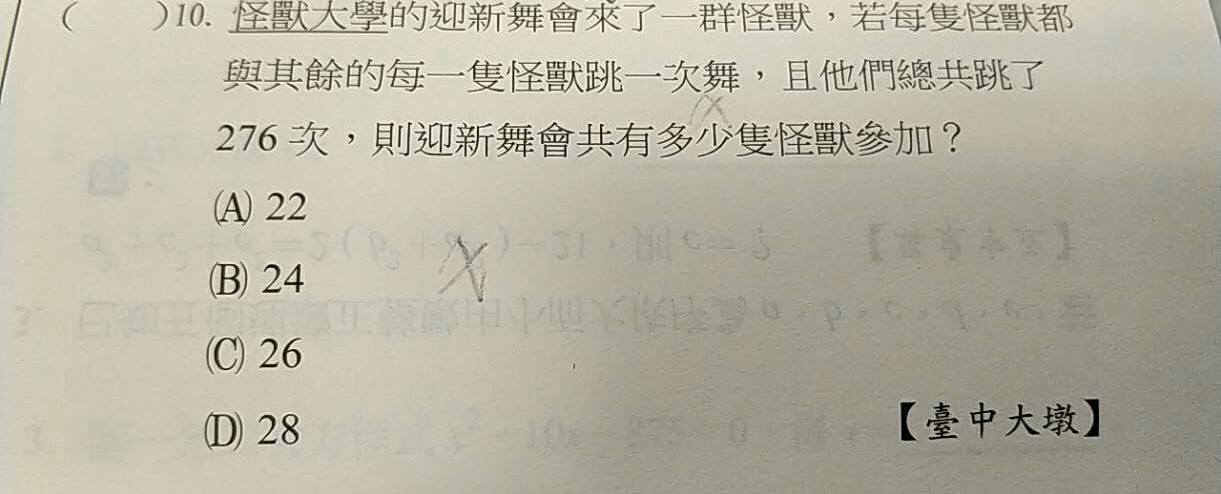 (  )10. 怪獸大學的迎新舞會來了一群怪獸，若每隻怪獸都
與其餘的每一隻怪獸跳一次舞，且他們總共跳了
276 次，則迎新舞會共有多少隻怪獸參加？
(A) 22
(B) 24
(C) 26
(D) 28
【臺中大墩】